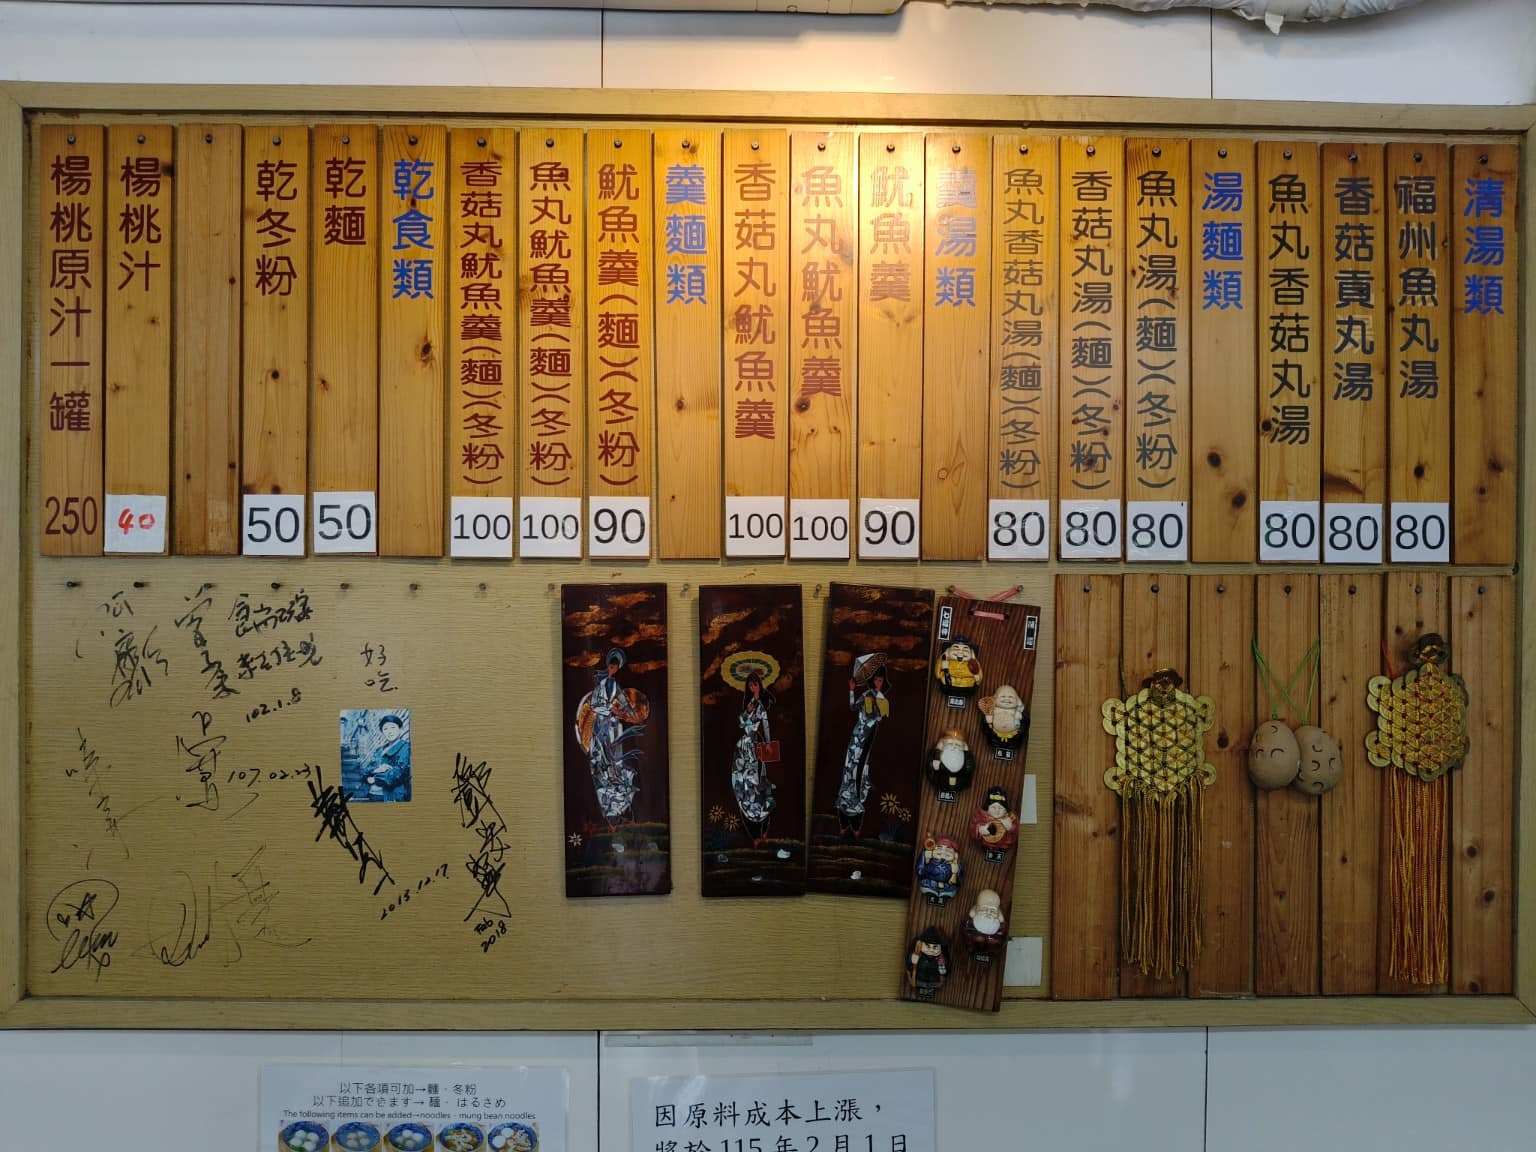 清湯類
福州魚丸湯
80
香菇貢丸湯
80
魚丸香菇丸湯
80
湯麵類
魚丸湯(麵)(冬粉)
80
香菇丸湯(麵)(冬粉)
80
魚丸香菇丸湯(麵)(冬粉)
80
羹湯類
魷魚羹
90
魚丸魷魚羹
100
香菇丸魷魚羹
100
羹麵類
魷魚羹(麵)(冬粉)
90
魚丸魷魚羹(麵)(冬粉)
100
香菇丸魷魚羹(麵)(冬粉)
100
乾食類
乾麵
50
乾冬粉
50
楊桃汁
40
楊桃原汁一罐
250
102.1.8
好吃
107.02.23
2013.12.17
Feb
2018
七福神
以下各項可加→麵·冬粉
以下追加できます→麺·はるさめ
The following items can be added→noodles·mung bean noodles
因原料成本上漲，
將於115年2月1日